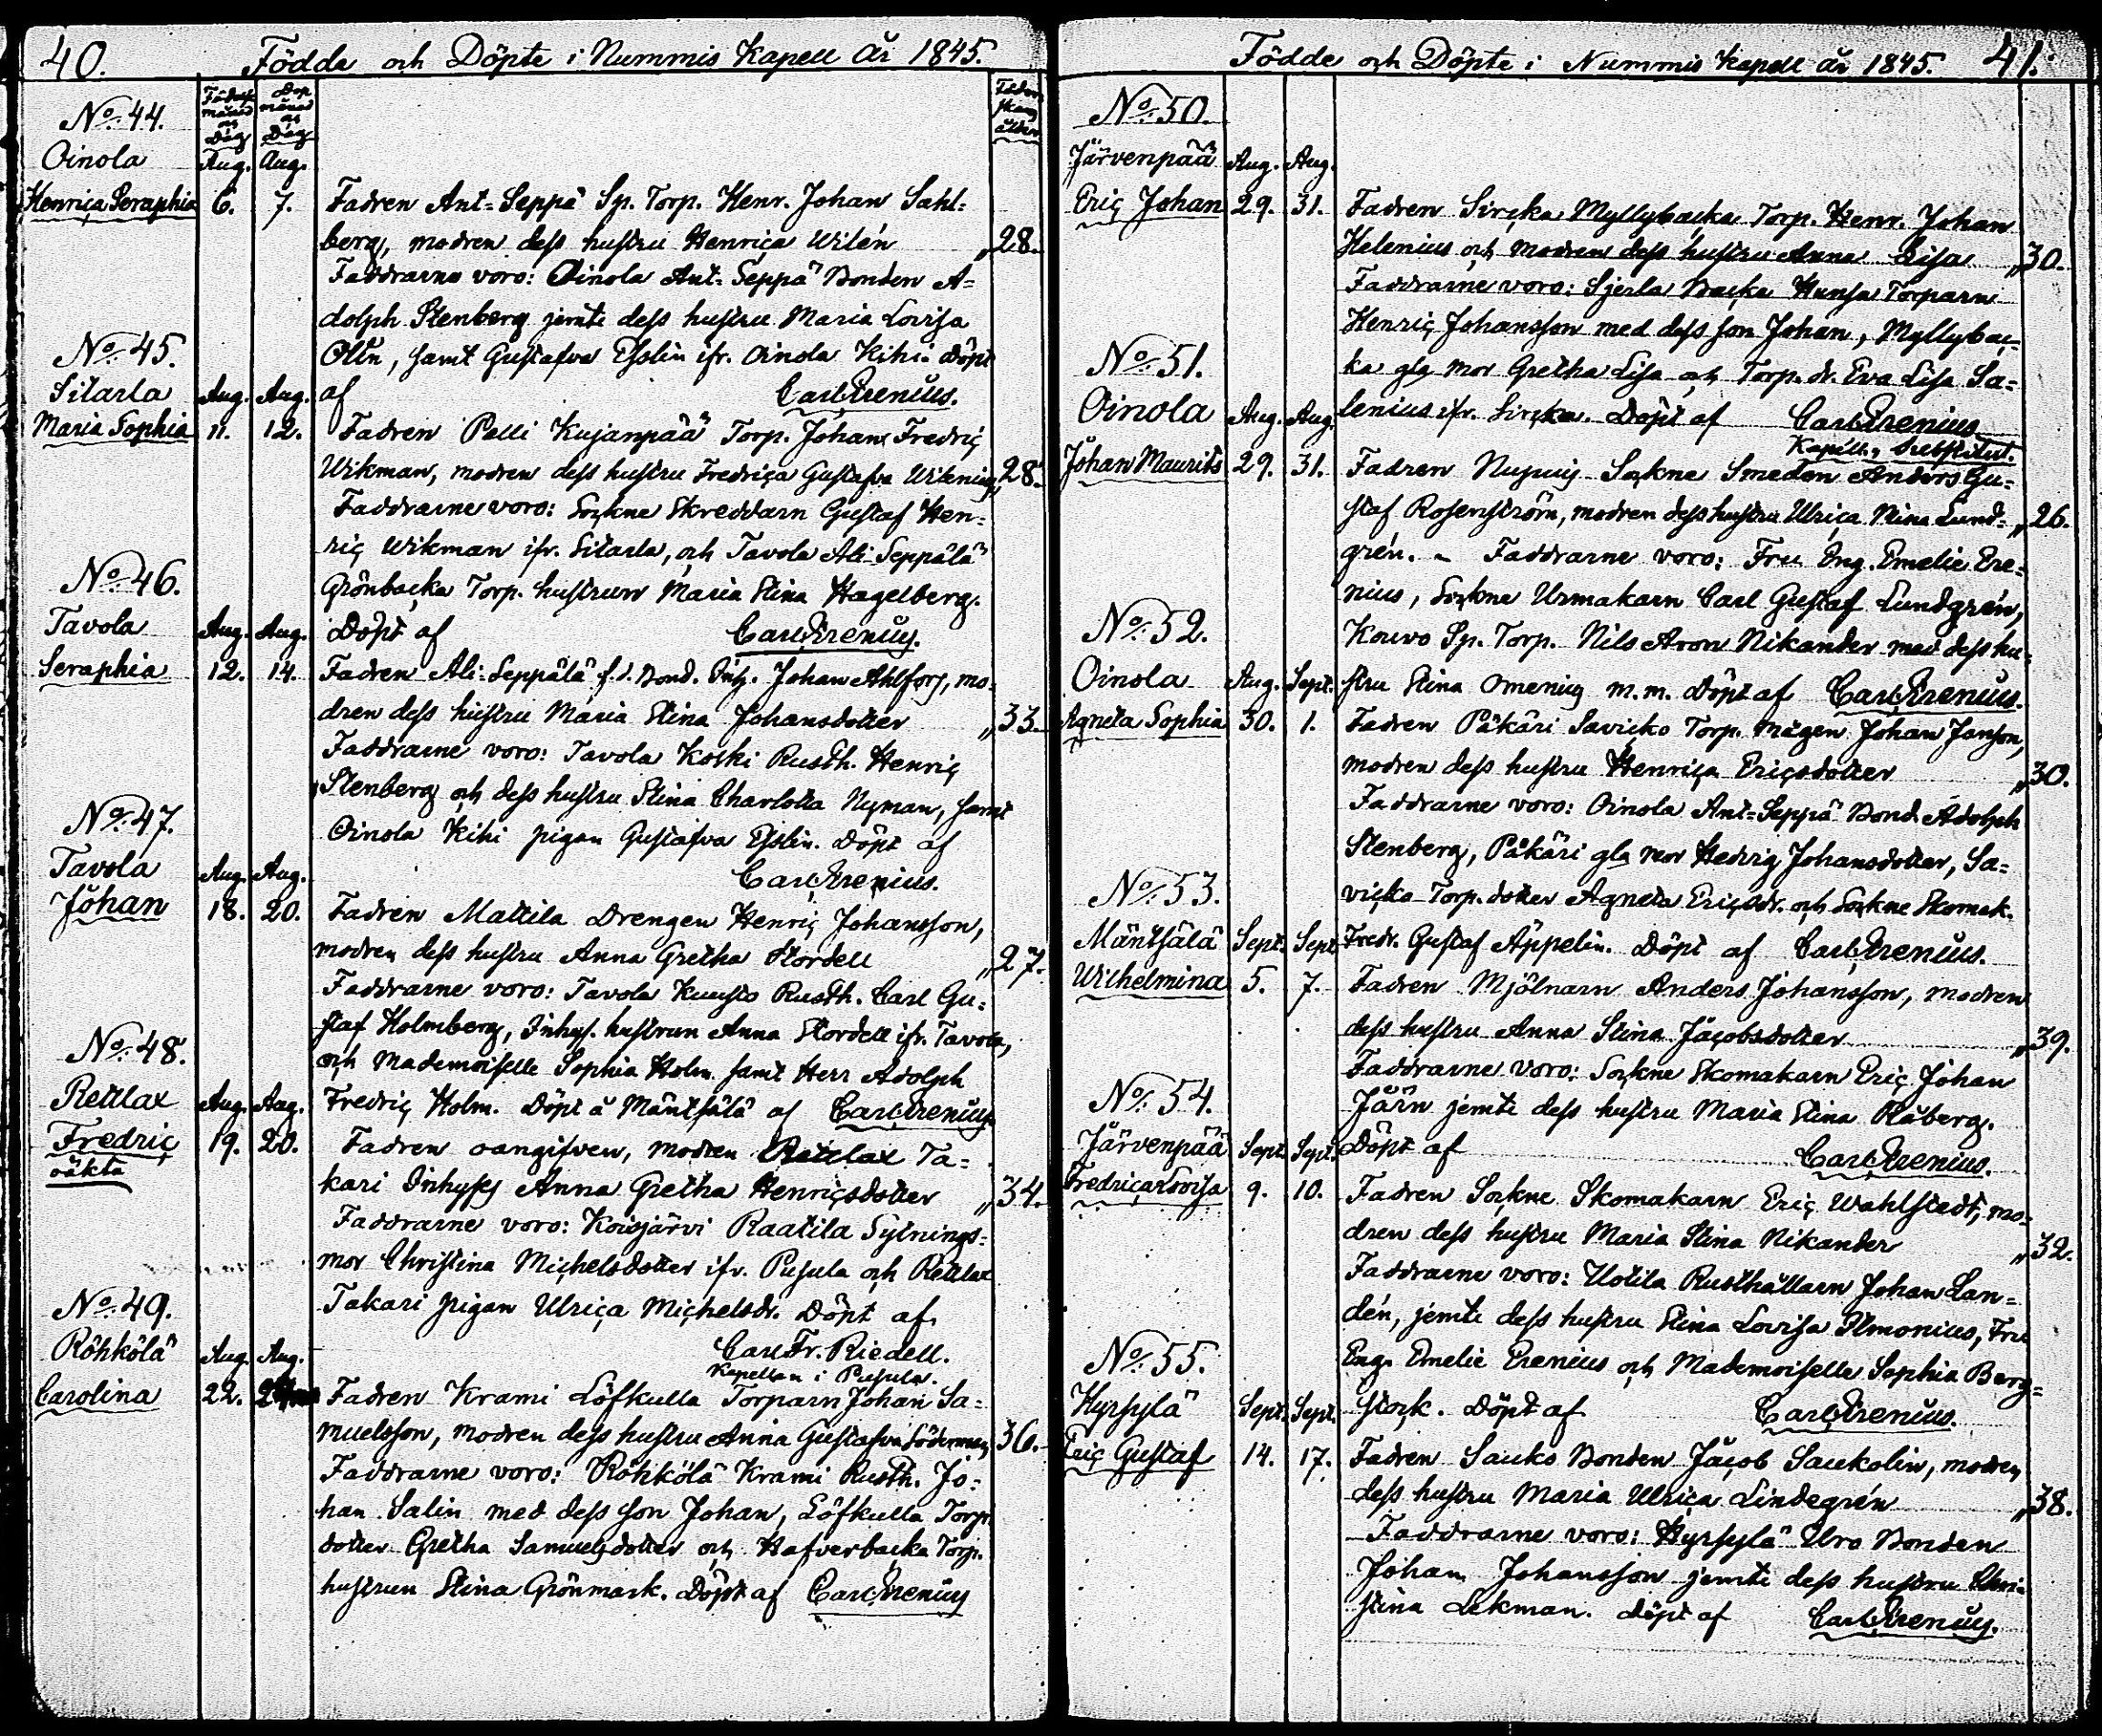 40. Födda och Döpte i Nummis Kapell År 1845.
Födelse månad och Dag
Dop månad och Dag
ålder
No. 44.
Oinola Aug. Aug.
Henrica Seraphia 6. 7. Fadren Ant-Seppä Sp. Torp. Henr. Johan Sahl-
berg, modren dess hustru Henrica Witén „28.
Faddrarne voro: Oinola Ant-Seppä Bonden A-
dolph Stenberg jemte dess hustru Maria Lovisa
Olin, samt Gustafva Esslin ifr. Oinola Kihi. Döpt
af Carl Erenius.
No. 45.
Sitarla Aug. Aug.
Maria Sophia 11. 12. Fadren Pelli Kujanpää Torp. Johan Fredric
Wikman, modren dess hustru Fredrica Gustafva Witenius „28.
Faddrarne voro: Sockne Skreddarn Gustaf Hen-
ric Wikman ifr. Sitarla, och Tavola Ali-Seppälä
Grönbacka Torp. hustrun Maria Stina Hagelberg.
Döpt af Carl Erenius.
No. 46.
Tavola Aug. Aug.
Seraphia 12. 14. Fadren Ali-Seppälä f.d. Bond. Inh. Johan Ahlfors, mo-
dren dess hustru Maria Stina Johansdotter „33.
Faddrarne voro: Tavola Koski Rusth. Henric
Stenberg och dess hustru Stina Charlotta Nyman, samt
Oinola Kihi pigan Gustafva Esslin. Döpt af
Carl Erenius.
No. 47.
Tavola Aug. Aug.
Johan 18. 20. Fadren Mattila Drengen Henric Johansson,
modren dess hustru Anna Gretha Stordell „27.
Faddrarne voro: Tavola Kuusto Rusth. Carl Gu-
staf Holmberg, Inhys. hustrun Anna Stordell ifr. Tavola,
och Mademoiselle Sophia Holm samt Herr Adolph
Fredric Holm. Döpt å Mäntsälä af Carl Erenius.
No. 48.
Retlax Aug. Aug.
Fredric 19. 20. Fadren oangifven, modren Retlax Ta-
oäkta
kari Inhyses Anna Gretha Henricsdotter „34.
Faddrarne voro: Koisjärvi Raatila Sytnings-
mor Christina Michelsdotter ifr. Pusula och Retlax
Takari pigan Ulrica Michelsdr. Döpt af
Carl Fr. Riedell.
Kapellan i Pusula.
No. 49.
Röhkölä Aug. Aug.
Carolina 22. 24. Fadren Krami Löfkulla Torparn Johan Sa-
muelsson, modren dess hustru Anna Gustafva Söderman, 36.
Faddrarne voro: Röhkölä Krami Rusth. Jo-
han Salin med dess son Johan, Löfkulla Torp.
dotter Gretha Samuelsdotter och Hafverbacka Torp.
hustrun Stina Grönmark. Döpt af Carl Erenius
Födde och Döpte i Nummis Kapell år 1845. 41.
No. 50.
Järvenpää Aug. Aug.
Eric Johan 29. 31. Fadren Sircka Myllybacka Torp. Henr. Johan
Helenius och modren dess hustru Anna Lisa „30.
Faddrarne voro: Sjerla Backa Hansa Torparn
Henric Johansson med dess son Johan, Myllybac-
ka gla mor Gretha Lisa och Torp. dr. Eva Lisa Sa-
lenius ifr. Sircka. Döpt af Carl Erenius
Kapell. Substitut.
No. 51.
Oinola Aug. Aug.
Johan Maurits 29. 31. Fadren Sockne Smeden Anders Gu-
staf Rosenström, modren dess hustru Ulrica Mina Lund- „26.
grén. – Faddrarne voro: Fru Eng. Emelie Ere-
nius, Sockne Urmakarn Carl Gustaf Lundgrén,
Kouvo Sp. Torp. Nils Aron Nikander med dess hu-
stru Stina Omenius m.m. Döpt af Carl Erenius.
No. 52.
Oinola Aug. Sept.
Agneta Sophia 30. 1. Fadren Päkäri Savicko Torp. mågen Johan Janson,
modren dess hustru Henrica Ericsdotter „30.
Faddrarne voro: Oinola Ant-Seppä Bond. Adolph
Stenberg, Päkäri gla mor Hedvig Johansdotter, Sa-
vicko Torp. dotter Agneta Ericsdr. och Sockne Skomak.
Fredr. Gustaf Äppelin. Döpt af Carl Erenius.
No. 53.
Mäntsälä Sept. Sept.
Wilhelmina 5. 7. Fadren Mjölnarn Anders Johansson, modren
dess hustru Anna Stina Jacobsdotter „39.
Faddrarne voro: Sockne Skomakarn Eric Johan
Järn jemte dess hustru Maria Stina Råberg.
Döpt af Carl Erenius.
No. 54.
Järvenpää Sept. Sept.
Fredrica Lovisa 9. 10. Fadren Sockne Skomakarn Eric Wahlstedt, mo-
dren dess hustru Maria Stina Nikander „32.
Faddrarne voro: Uotila Rusthållarn Johan Lan-
dén, jemte dess hustru Stina Lovisa Ilmonius, Fru
Eng. Emelie Erenius och Mademoiselle Sophia Berg-
stock. Döpt af Carl Erenius.
No. 55.
Hyrsylä Sept. Sept.
Eric Gustaf 14. 17. Fadren Sauko Bonden Jacob Saukolin, modren
dess hustru Maria Ulrica Lindegrén „38.
Faddrarne voro: Hyrsylä Uro Bonden
Johan Johansson jemte dess hustru Chri-
stina Lekman. Döpt af Carl Erenius.